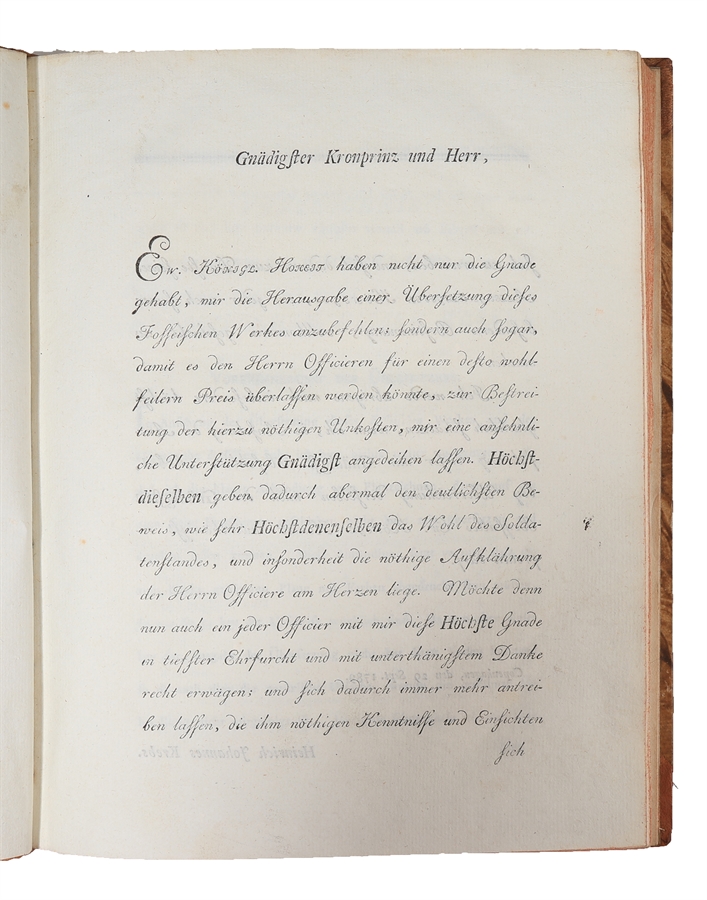 Gnädigſter Kronprinz und Herr,
Ew. Königl. Hoheit haben nicht nur die Gnade
gehabt, mir die Herausgabe einer Überſetzung dieſes
Foſſeiſchen Werkes anzubefehlen; ſondern auch ſogar,
damit es den Herrn Officieren für einen deſto wohl-
feilern Preis überlaſſen werden könnte, zur Beſtrei
tung der hierzu nöthigen Unkoſten, mir eine anſehnli
che Unterſtützung Gnädigſt angedeihen laſſen. Höchſt-
dieſelben geben dadurch abermal den deutlichſten Be-
weis, wie ſehr Höchſtdenenſelben das Wohl des Solda-
tenſtandes, und inſonderheit die nöthige Aufklährung
der Herrn Officiere am Herzen liege. Möchte denn
nun auch ein jeder Officier mit mir dieſe Höchſte Gnade
in tiefſter Ehrfurcht und mit unterthänigſtem Danke
recht erwägen; und ſich dadurch immer mehr antrei-
ben laſſen, die ihm nöthigen Kenntniſſe und Einſichten
ſich